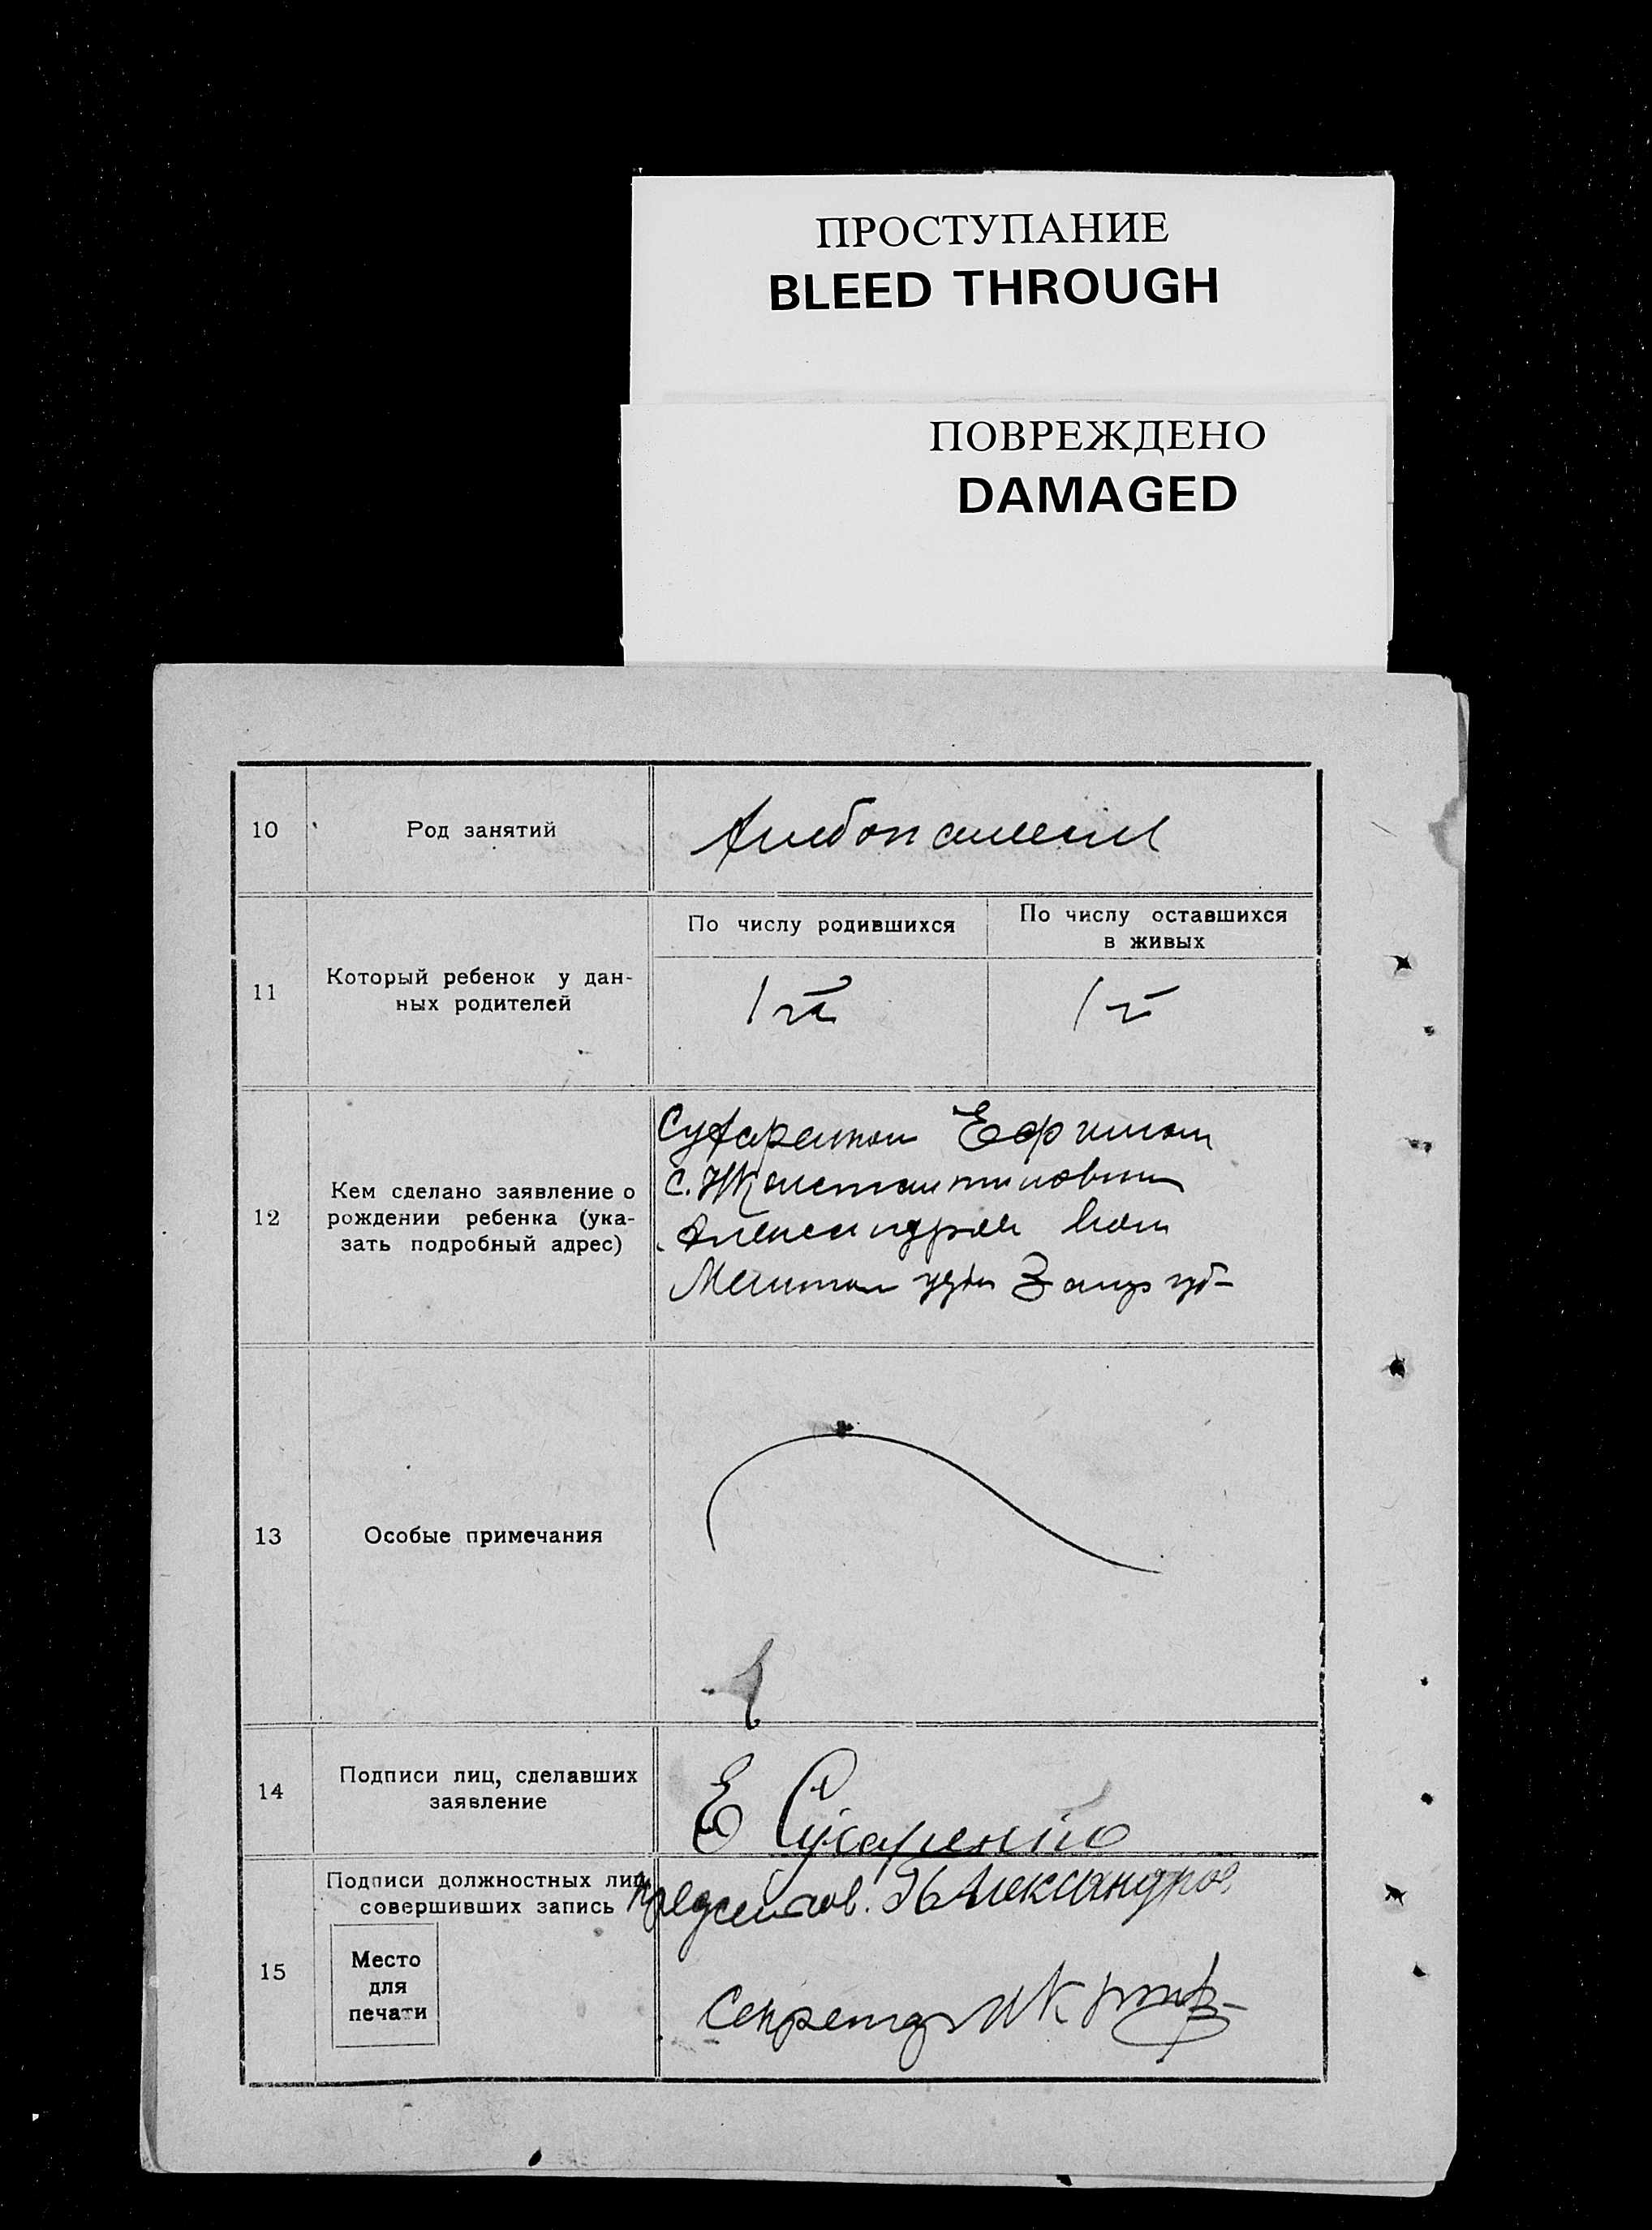 ПРОСТУПАНИЕ
BLEED THROUGH
ПОВРЕЖДЕНО
DAMAGED
10
Род занятий
Хлебопашец
11
Который ребенок у дан-
ных родителей
По числу родившихся
По числу оставшихся
в живых
1й
1й
12
Кем сделано заявление о
рождении ребенка (ука-
зать подробный адрес)
Сухаренком Ефимом
с. Константиновки
Александров вол
Мелитоп уезда Запор губ-
13
Особые примечания
14
Подписи лиц, сделавших
заявление
Е Сухаренко
15
Подписи должностных лиц,
совершивших запись
Место
для
печати
Александров
Секретарь